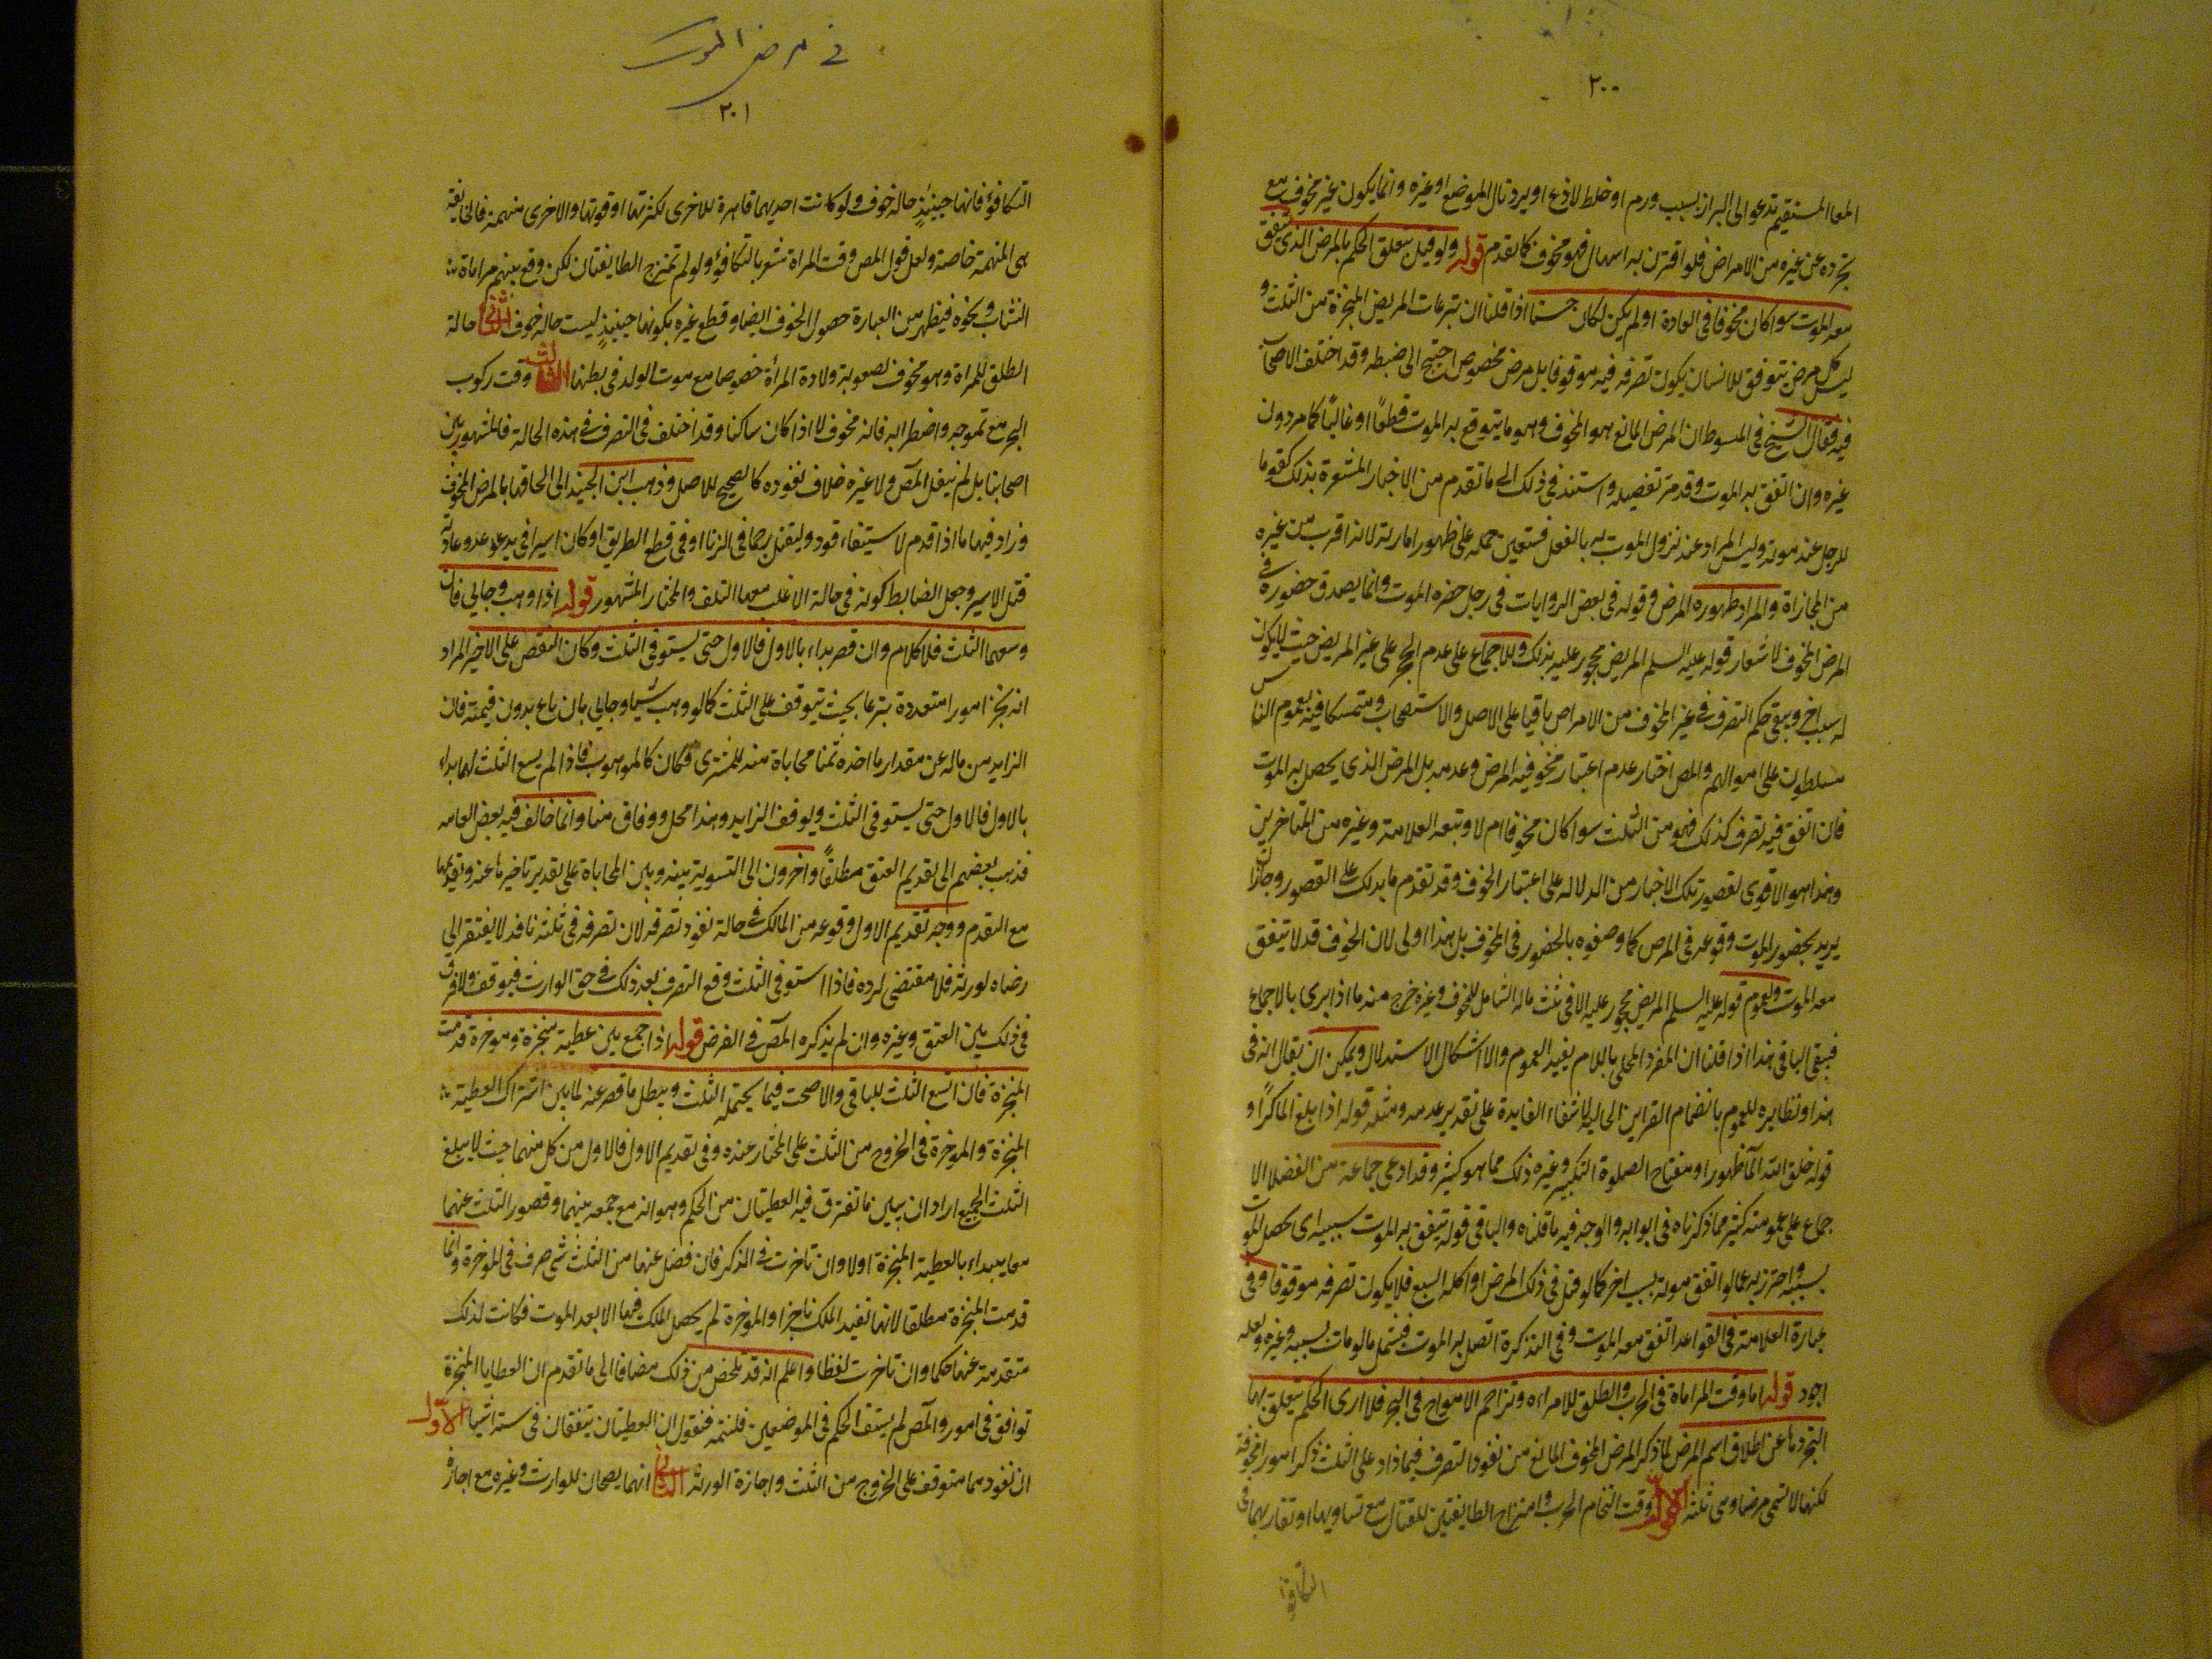 ٢٠٠
المعا المستقيم تدعو الى البراز بسبب ورم او خلط لاذع او برد نال الموضع او غيره وانما يكون غير مخوف مع
تجرده عن غيره من الامراض فلو اقترن به اسهال فهو مخوف كما تقدم قوله ولو قيل يتعلق الحكم بالمرض الذي يتفق
معه الموت سوا كان مخوفا في العادة او لم يكن لكان حسنا اذا قلنا ان تبرعات المريض المنجزة من الثلث و
ليس كل مرض يتوفق للانسان يكون تصرفه فيه موقوفا بل مرض مخصوص احتيج الى ضبطه وقد اختلف الاصحاب
فيه فقال الشيخ في المبسوط ان المرض المانع هو المخوف وهو ما يتوقع به الموت قطعًا او غالبًا كما مر دون
غيره وان اتفق به الموت وقد مر تفصيله واستند في ذلك الى ما تقدم من الاخبار المشعرة بذلك كقوله ما
للرجل عند موته وليس المراد عند نزول الموت به بالفعل فتعين حمله على ظهور اماراته لانه اقرب من غيره
من المجازاة والمراد ظهوره المرض وقوله في بعض الروايات في رجل حضره الموت وانما يصدق حضوره في
المرض المخوف لاشعار قوله عليه السلم المريض محجور عليه بذلك وللاجماع على عدم الحجر على غير المريض حيث لا يكون
له سبب اخر ويبقى حكم التصرف في غير المخوف من الامراض باقيا على الاصل والاستصحاب ومتمسكا فيه بعموم الناس
مسلطون على اموالهم والمص اختار عدم اعتبار مخوفية المرض وعدمه بل المرض الذي يحصل به الموت
فان اتفق فيه تصرف كذلك فهو من الثلث سوا كان مخوفا ام لا وتبعه العلامة وغيره من المتاخرين
وهذا هو الاقوى لقصور تلك الاخبار من الدلاله على اعتبار الخوف وقد تقدم ما يدلك على القصور وجاز ان
يريد بحضور الموت وقوعه في المرض كما وصفوه بالحضور في المخوف بل هذا اولى لان الخوف قد لا يتفق
معه الموت ولعموم قوله عليه السلم المريض محجور عليه الا في ثلث ماله الشامل للمخوف وغيره خرج منه ما اذا برى بالاجماع
فيبقى الباقي هذا اذا قلنا ان المفرد المحلى باللام يفيد العموم والا اشكل الاستدلال ويمكن ان يقال انه في
هذا ونظايره للعموم بانضمام القراين الحالية لانتفاء الفايدة على تقدير عدمه ومثله قوله اذا بلغ الما كرًا و
قوله خلق الله الما طهورا ومفتاح الصلوة التكبير وغيره ذلك مما هو كثير وقد ادعى جماعة من الفضلا الا
جماع على عمومته كثير مما ذكرناه في ابوابه والوجه فيه ما قلناه والباقي قوله يتفق به الموت سببيه اي يحصل الموت
بسببه واحترز به عما لو اتفق موته بسبب اخر كما لو قتل في ذلك المرض او اكله السبع فلا يكون تصرفه موقوفا وفي
عبارة العلامة في القواعد اتفق معه الموت وفي التذكرة اتصل به الموت فيشمل ما لو مات بسببه وغيره ولعله
اجود قوله اما وقت المراماة في الحرب والطلق للامراءه وتزاحم الامواج في البحر فلا ارى الحكم يتعلق بها
لتجردها عن اطلاق اسم المرض لما ذكر المرض المخوف المانع من نفوذ التصرف فيما زاد على الثلث ذكر امورا مخوفة
لكنها لا تسمى مرضا وهي ثلثة الاول وقت التحام الحرب وامتزاج الطايفتين للقتال مع تساويهما او تقاربهما في
التكافؤ
في مرض الموت
٢٠١
التكافؤ فانها حينئذٍ حالة خوف ولو كانت احديهما قاهرة للاخرى لكثرتها او قوتها والاخرى منهزمة فالخايفة
هي المنهزمة خاصة ولعل قول المص وقت المراماة تشعر بالتكافؤ ولو لم تمتزج الطايفتان لكن وقع بينهم مراماة من
النشاب ونحوه فيظهر من العبارة حصول الخوف ايضا وقطع غيره بكونها حينئذٍ ليست حالة خوف الثاني حالة
الطلق للمراة وهو مخوف لصعوبة ولادة المرأة خصوصا مع موت الولد في بطنها الثالث وقت ركوب
البحر مع تموجه واضطرابه فانه مخوف لا اذا كان ساكنا وقد اختلف في التصرف في هذه الحالة فالمشهور بين
اصحابنا بل لم ينقل المص ولا غيره خلاف نفوذه كالصحيح للاصل وذهب ابن الجنيد الى الحاقها بالمرض المخوف
وزاد فيها ما اذا قدم لاستيفاء قود وليقتل رجما في الزنا او في قطع الطريق او كان اسيرا في يد عدو عادته
قتل الاسير وجعل الضابط كونه في حالة الاغلب معها التلف والمختار المشهور قوله اذا وهب وحابى فان
وسعهما الثلث فلا كلام وان قصر بداء بالاول فالاول حتى يستوفي الثلث وكان النقص على الاخير المراد
انه نجز امورا متعددة تبرعا بحيث يتوقف على الثلث كما لو وهب شيئا وحابى بان باع بدون قيمته فان
الزايد من ماله عن مقدار ما اخذه ثمنا محاباة منه للمشترى فكان كالموهوب فاذا لم يسع الثلث لهما بداء
بالاول فالاول حتى يستوفي الثلث ويوقف الزايد وهذا محل وفاق منا وانما خالف فيه بعض العامه
فذهب بعضهم الى تقديم العتق مطلقًا واخرون الى التسوية بينه وبين المحاباة على تقدير تاخيرها عنه وتقديمها
مع التقدم ووجه تقديم الاول وقوعه من المالك في حالة نفوذ تصرفه لان تصرفه في ثلثه نافذ لا يفتقر الى
رضاه لورثه فلا مقتضى لرده فاذا استوفي الثلث وقع التصرف بعد ذلك في حق الوارث فيوقف ولا فرق
في ذلك بين العتق وغيره وان لم يذكره المص في الفرض قوله اذا جمع بين عطية منجزة ومؤخرة قدمت
المنجزة فان اتسع الثلث للباقي والا صحت فيما يحتمله الثلث ويبطل ما قصر عنه لما بين اشتراك العطية
المنجزة والموخرة في الخروج من الثلث على المختار عنده وفي تقديم الاول فالاول من كل منهما حيث لا يبلغ
الثلث الجميع اراد ان يبين ما تفترق فيه العطيتان من الحكم وهو انه مع جمعه بينهما وقصور الثلث عنهما
معا يبداء بالعطية المنجزة اولا وان تاخرت في الذكر فان فضل عنها من الثلث شي صرف في الموخرة وانما
قدمت المنجزة مطلقا لانها تفيد الملك ناجزا والموخرة لم يحصل الملك فيها الا بعد الموت فكانت لذلك
متقدمة عنها حكما وان تاخرت لفظا واعلم انه قد تلخص من ذلك مضافا الى ما تقدم ان العطايا المنجزة
توافق في امور والمص لم يستف الحكم في الموضعين فلنتمه فنقول ان العطيتان يتفقان في ستة اشيا الاول
ان نفوذهما متوقف على الخروج من الثلث واجازة الورثة الثاني انهما يصحان للوارث وغيره مع اجازة